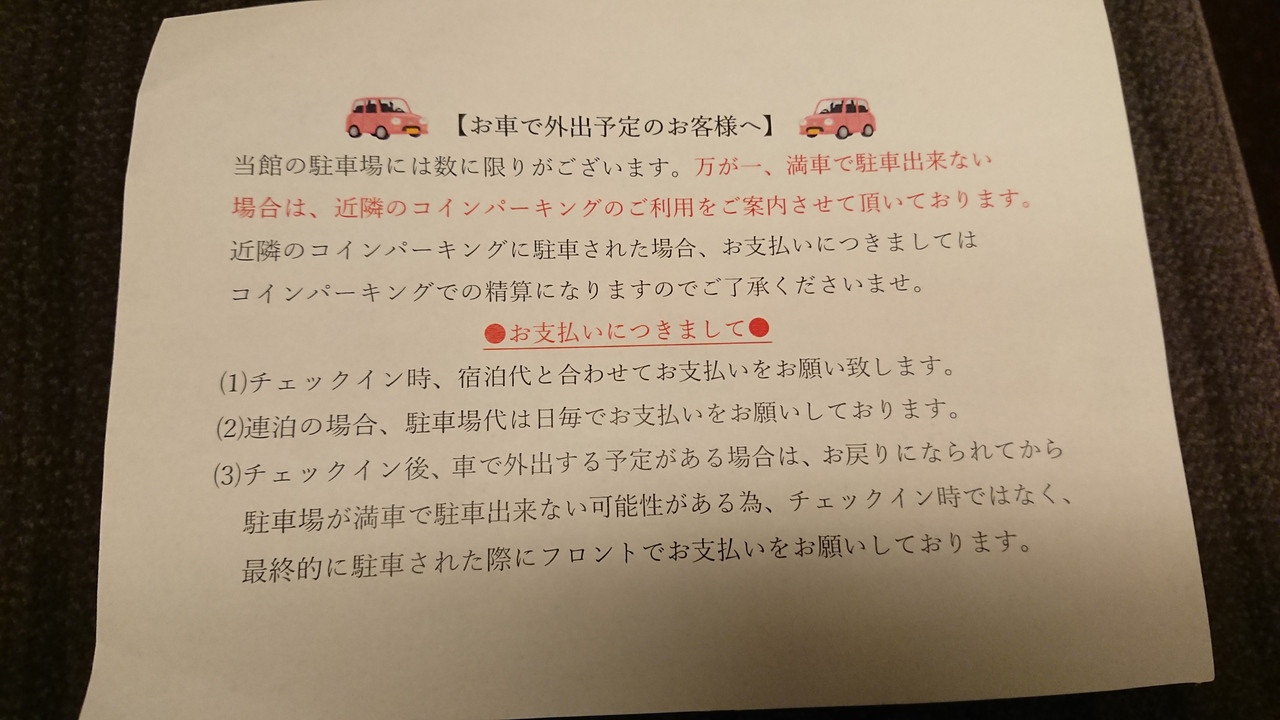 【お車で外出予定のお客様へ】
当館の駐車場には数に限りがございます。万が一、満車で駐車出来ない
場合は、近隣のコインパーキングのご利用をご案内させて頂いております。
近隣のコインパーキングに駐車された場合、お支払いにつきましては
コインパーキングでの精算になりますのでご了承くださいませ。
●お支払いにつきまして●
⑴チェックイン時、宿泊代と合わせてお支払いをお願い致します。
⑵連泊の場合、駐車場代は日毎でお支払いをお願いしております。
⑶チェックイン後、車で外出する予定がある場合は、お戻りになられてから
駐車場が満車で駐車出来ない可能性がある為、チェックイン時ではなく、
最終的に駐車された際にフロントでお支払いをお願いしております。